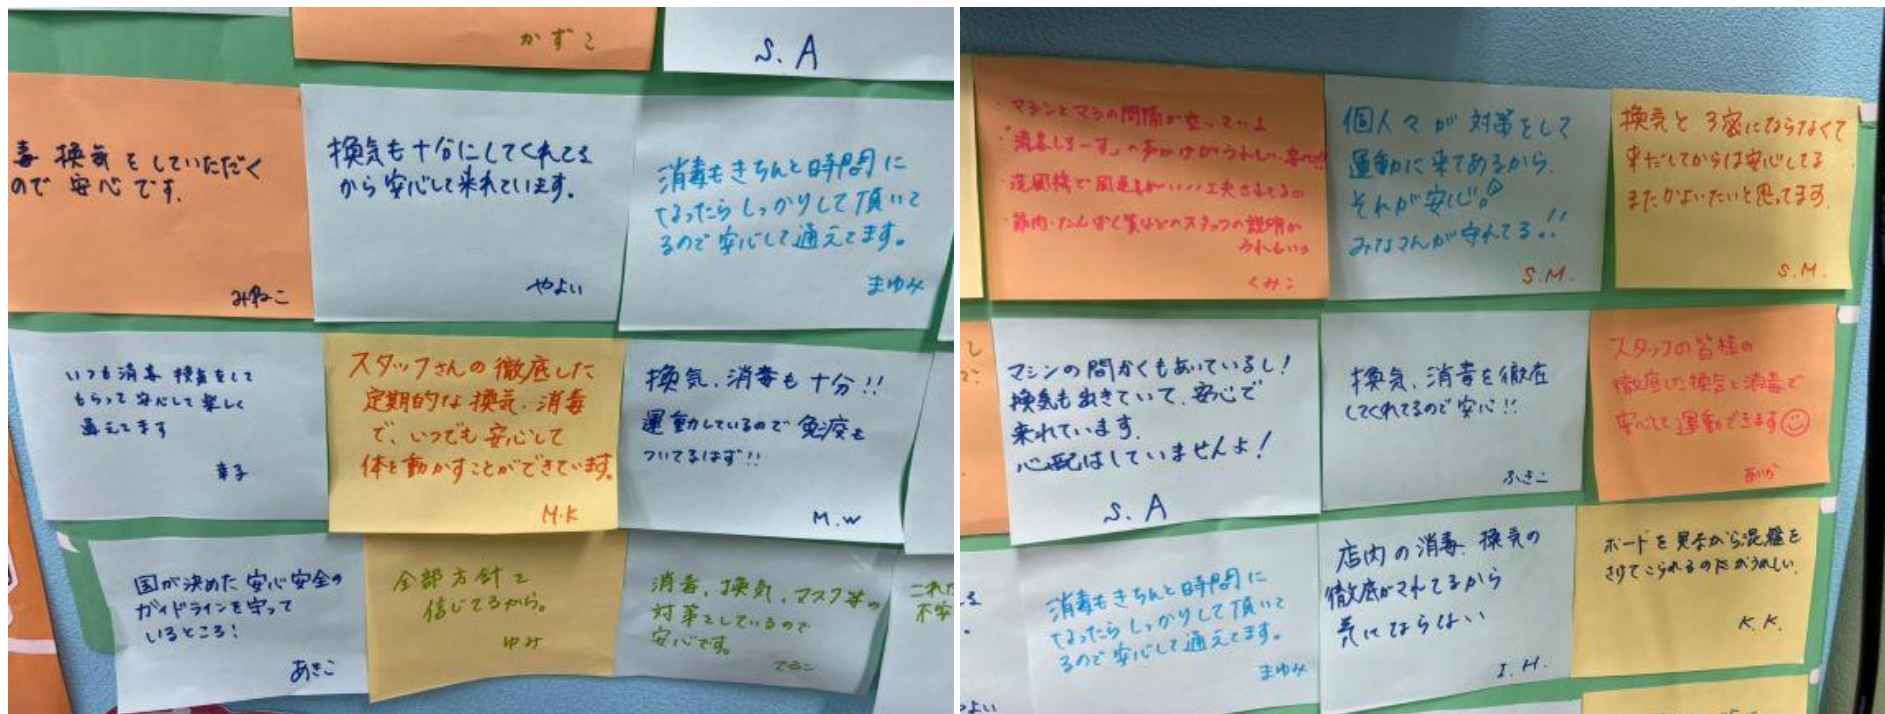 かずこ
S.A
毒 換気をしていただく
ので 安心です。
みねこ
換気も十分にしてくれてる
から安心して来れています。
やよい
消毒もきちんと時間に
なったらしっかりして頂いて
るので安心して通えてます。
まゆみ
いつも消毒 換気をして
もらって安心して楽しく
通えてます
幸子
スタッフさんの徹底した
定期的な換気、消毒
で、いつでも安心して
体を動かすことができています。
M.K
換気、消毒も十分!!
運動しているので免疫も
ついてるはず!!
M.W
国が決めた安心安全の
ガイドラインを守って
いるところ!
あきこ
全部方針を
信じてるから。
ゆみ
消毒、換気、マスク等の
対策をしているので
安心です。
てるこ
これ
不安
・マシンとマシンの間隔が空っている
・「消毒しまーす」の声かけがうれしい、安心!!
・混雑
工夫されてる
・筋肉・たんぱく質などのスタッフの説明が
うれしい。
くみこ
個人々が対策をして
運動に来てあるから。
それが安心。
みなさんが守れてる!!
S.M.
換気と3密にならなくて
来だしてからは安心してる
またかよいたいと思ってます。
S.M.
マシンの間かくもあいているし!
換気も出きていて、安心で
来れています。
心配はしていませんよ!
S.A
換気、消毒を徹底
してくれてるので安心!!
ふきこ
スタッフの皆様の
徹底した換気と消毒で
安心して運動できます
あいか
消毒もきちんと時間に
なったらしっかりして頂いて
るので安心して通えてます。
まゆみ
店内の消毒、換気の
徹底がされてるから
気にならない
I.H.
ボードを見ながら混雑を
さけてこられるのがうれしい。
K.K.
よい